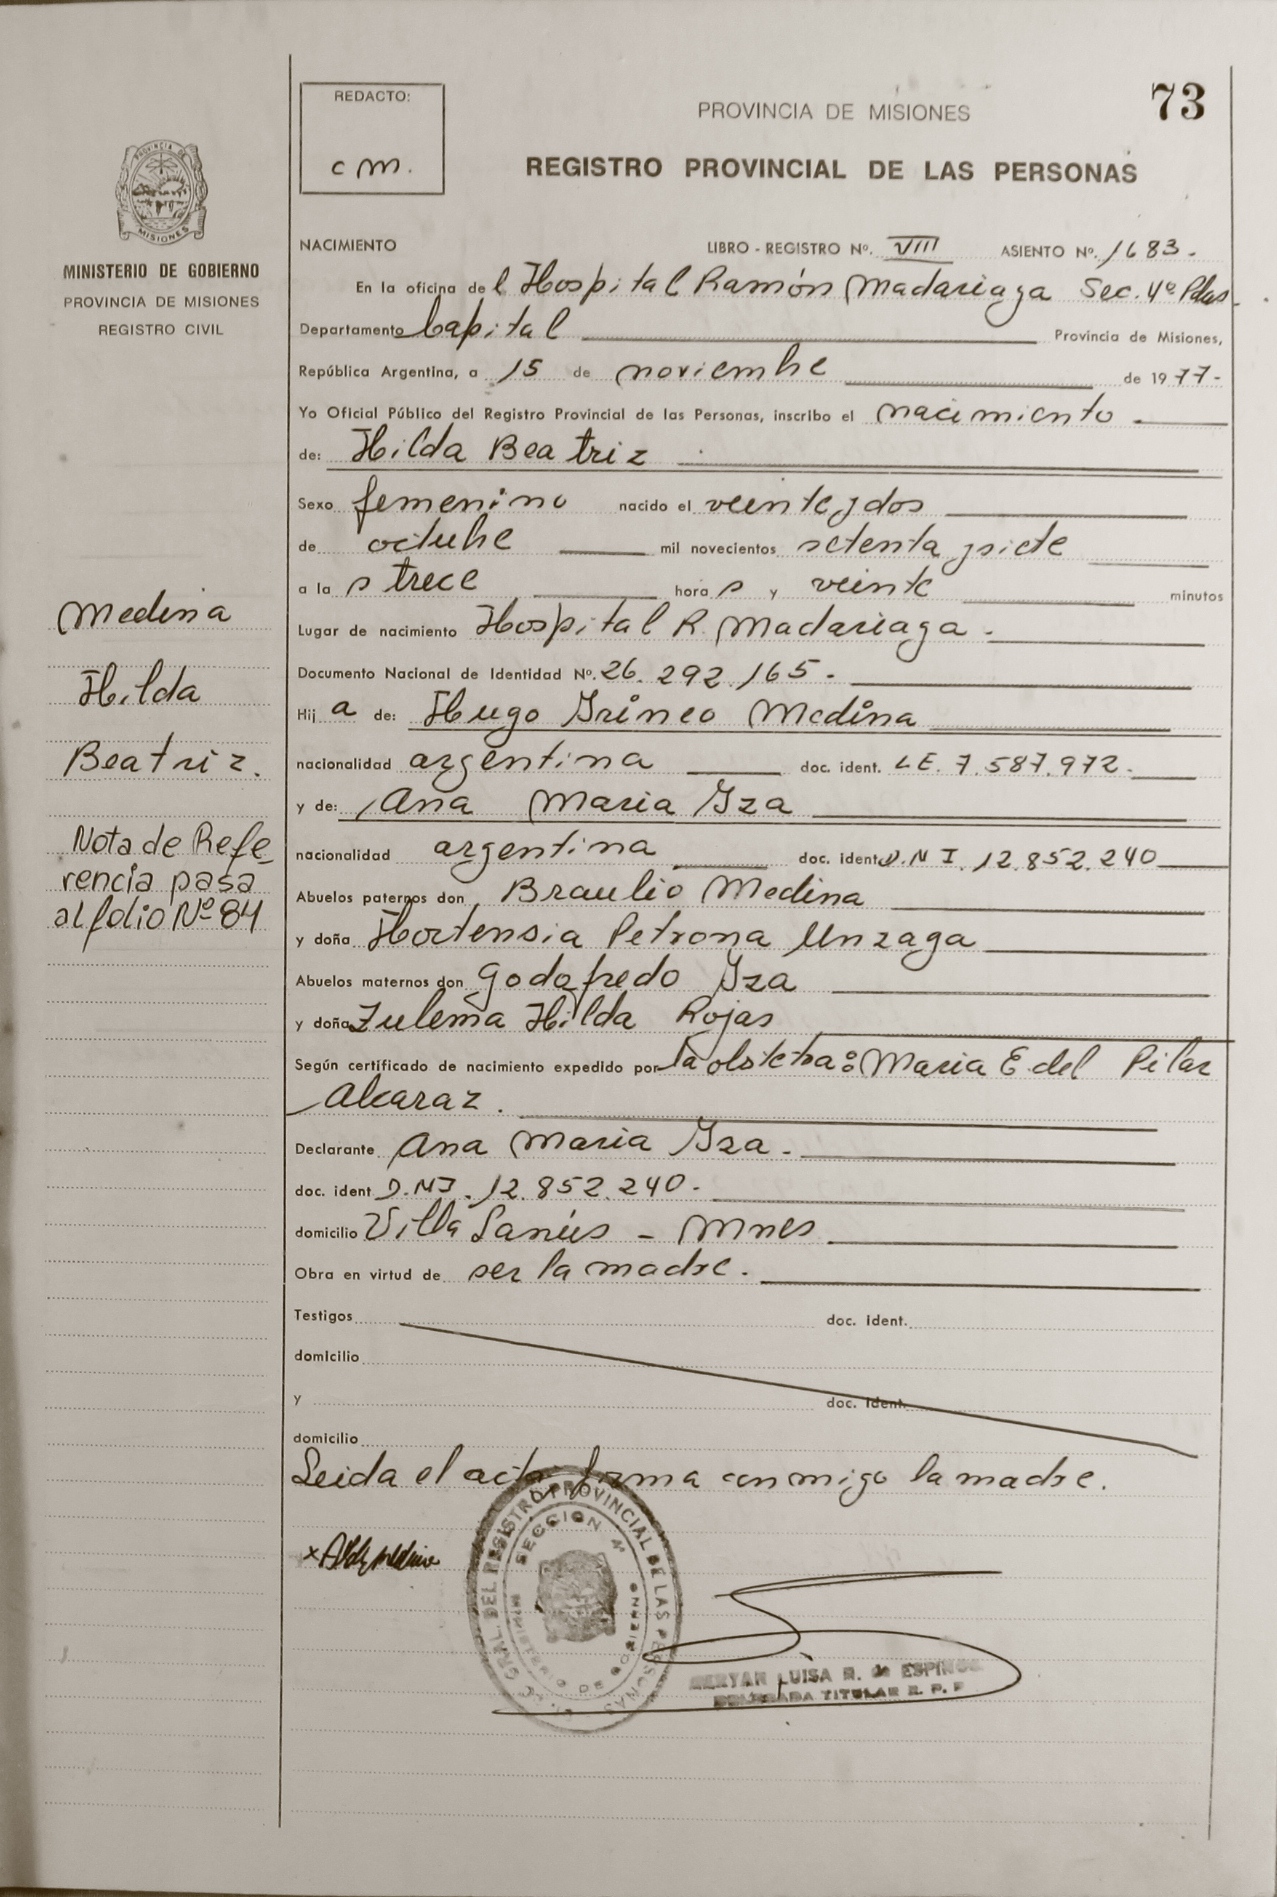 73
REDACTO:
c m.
PROVINCIA DE MISIONES
REGISTRO PROVINCIAL DE LAS PERSONAS
PROVINCIA DE
MISIONES
MINISTERIO DE GOBIERNO
PROVINCIA DE MISIONES
REGISTRO CIVIL
NACIMIENTO LIBRO - REGISTRO Nº. VIII ASIENTO Nº. 1683.
En la oficina del Hospital Ramón Madariaga Sec. 4º Pdas.
Departamento Capital Provincia de Misiones,
República Argentina, a 15 de noviembre de 1977.
Yo Oficial Público del Registro Provincial de las Personas, inscribo el nacimiento
de: Hilda Beatriz
Sexo femenino nacido el veintey dos
de octubre mil novecientos setenta y siete
a las trece horas y veinte minutos
Lugar de nacimiento Hospital R. Madariaga.
Documento Nacional de Identidad Nº. 26.292.165.
Hija de: Hugo Irineo Medina
nacionalidad argentina doc. ident. LE. 7.587.972.
y de: Ana Maria Iza
nacionalidad argentina doc. ident. D.N I. 12.852.240
Abuelos paternos don Braulio Medina
y doña Hortensia Petrona Unzaga
Abuelos maternos don Godofredo Iza
y doña Zulema Hilda Rojas
Según certificado de nacimiento expedido por la obstetra: Maria E. del Pilar
Alcaraz.
Declarante Ana Maria Iza.
doc. ident. D.NI. 12.852.240.
domicilio Villa Lanús - Mnes
Obra en virtud de ser la madre.
Testigos doc. ident.
domicilio
y doc. ident.
domicilio
Leida el acta firma conmigo la madre.
Medina
Hilda
Beatriz.
Nota de Refe-
rencia pasa
al folio Nº 84
GRAL. DEL REGISTRO PROVINCIAL DE LAS PERSONAS
SECCION 4ª
LUISA R. de ESPINOSA
DELEGADA TITULAR R. P. P